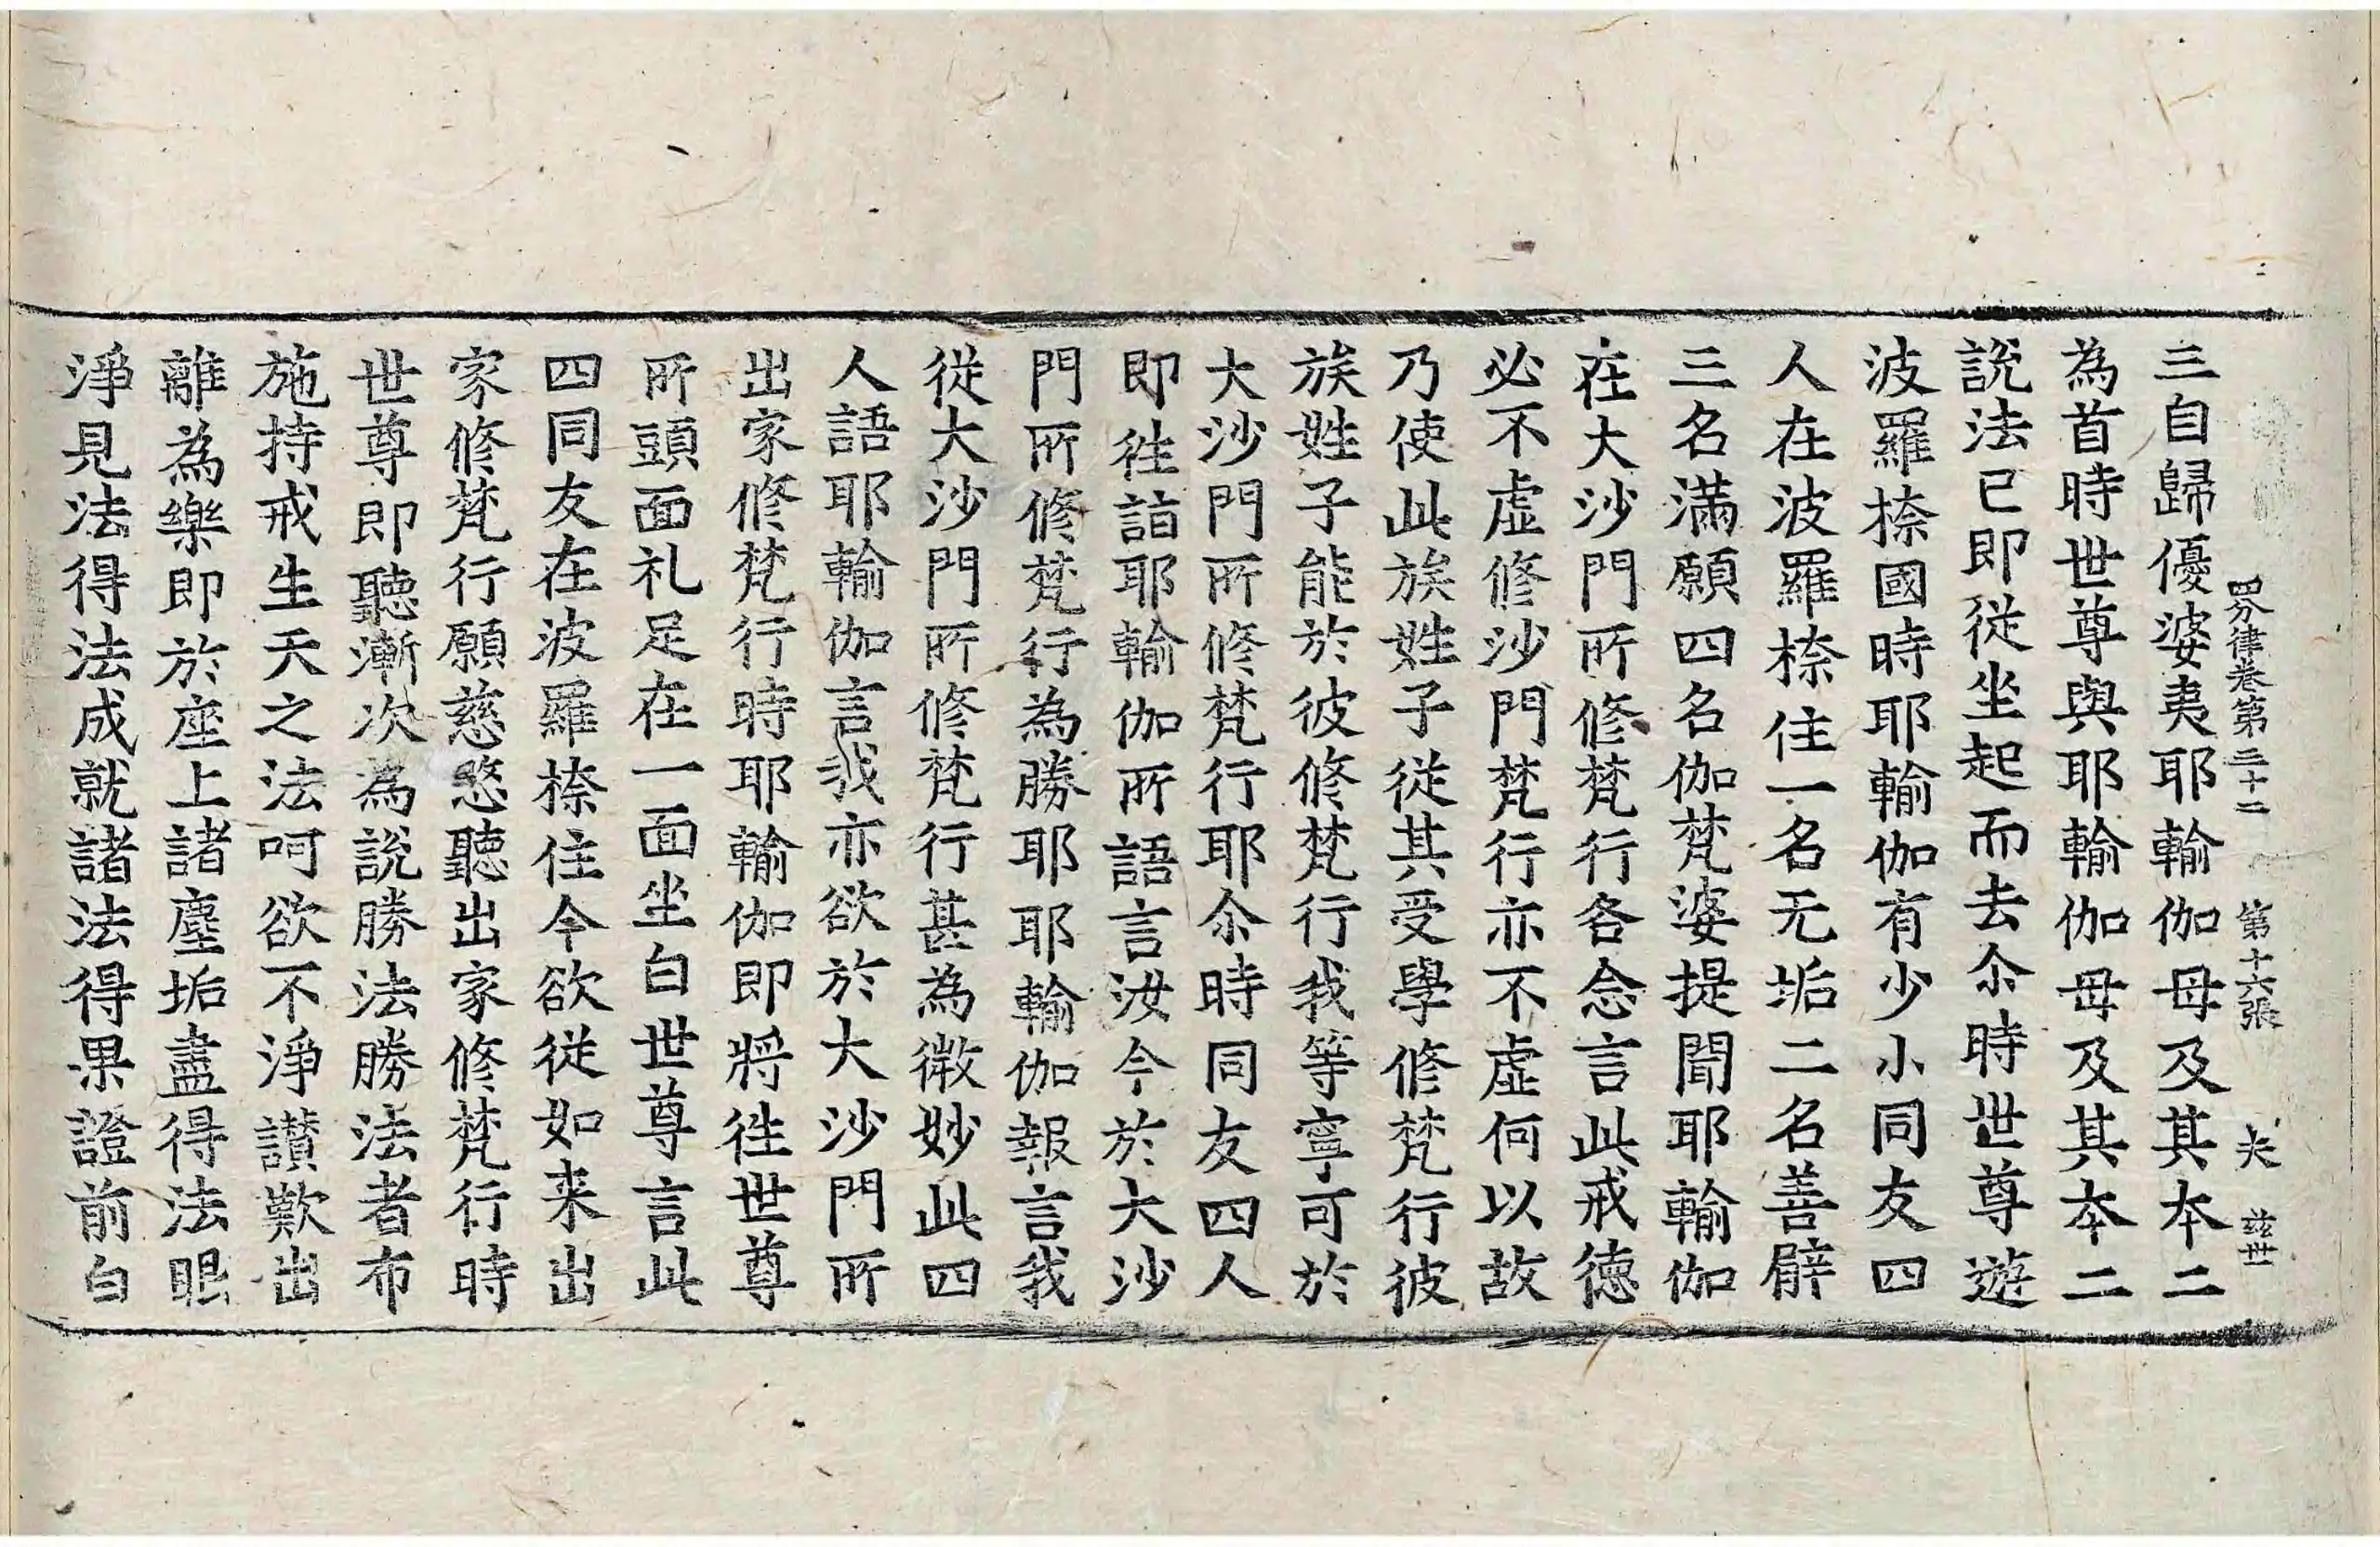 四分律卷第三十二 第十六張 夫
三自歸優婆夷耶輸伽母及其本二
為首時世尊與耶輸伽母及其本二
說法已即從坐起而去尒時世尊遊
波羅㮈國時耶輸伽有少小同友四
人在波羅㮈住一名无垢二名善臂
三名滿願四名伽梵婆提聞耶輸伽
在大沙門所修梵行各念言此戒德
必不虛修沙門梵行亦不虛何以故
乃使此族姓子從其受學修梵行彼
族姓子能於彼修梵行我等寧可於
大沙門所修梵行耶尒時同友四人
即往詣耶輸伽所語言汝今於大沙
門所修梵行為勝耶耶輸伽報言我
從大沙門所修梵行甚為微妙此四
人語耶輸伽言我亦欲於大沙門所
出家修梵行時耶輸伽即將往世尊
所頭面礼足在一面坐白世尊言此
四同友在波羅㮈住今欲從如来出
家修梵行願慈愍聽出家修梵行時
世尊即聽漸次為說勝法勝法者布
施持戒生天之法呵欲不淨讃歎出
離為樂即於座上諸塵垢盡得法眼
淨見法得法成就諸法得果證前白